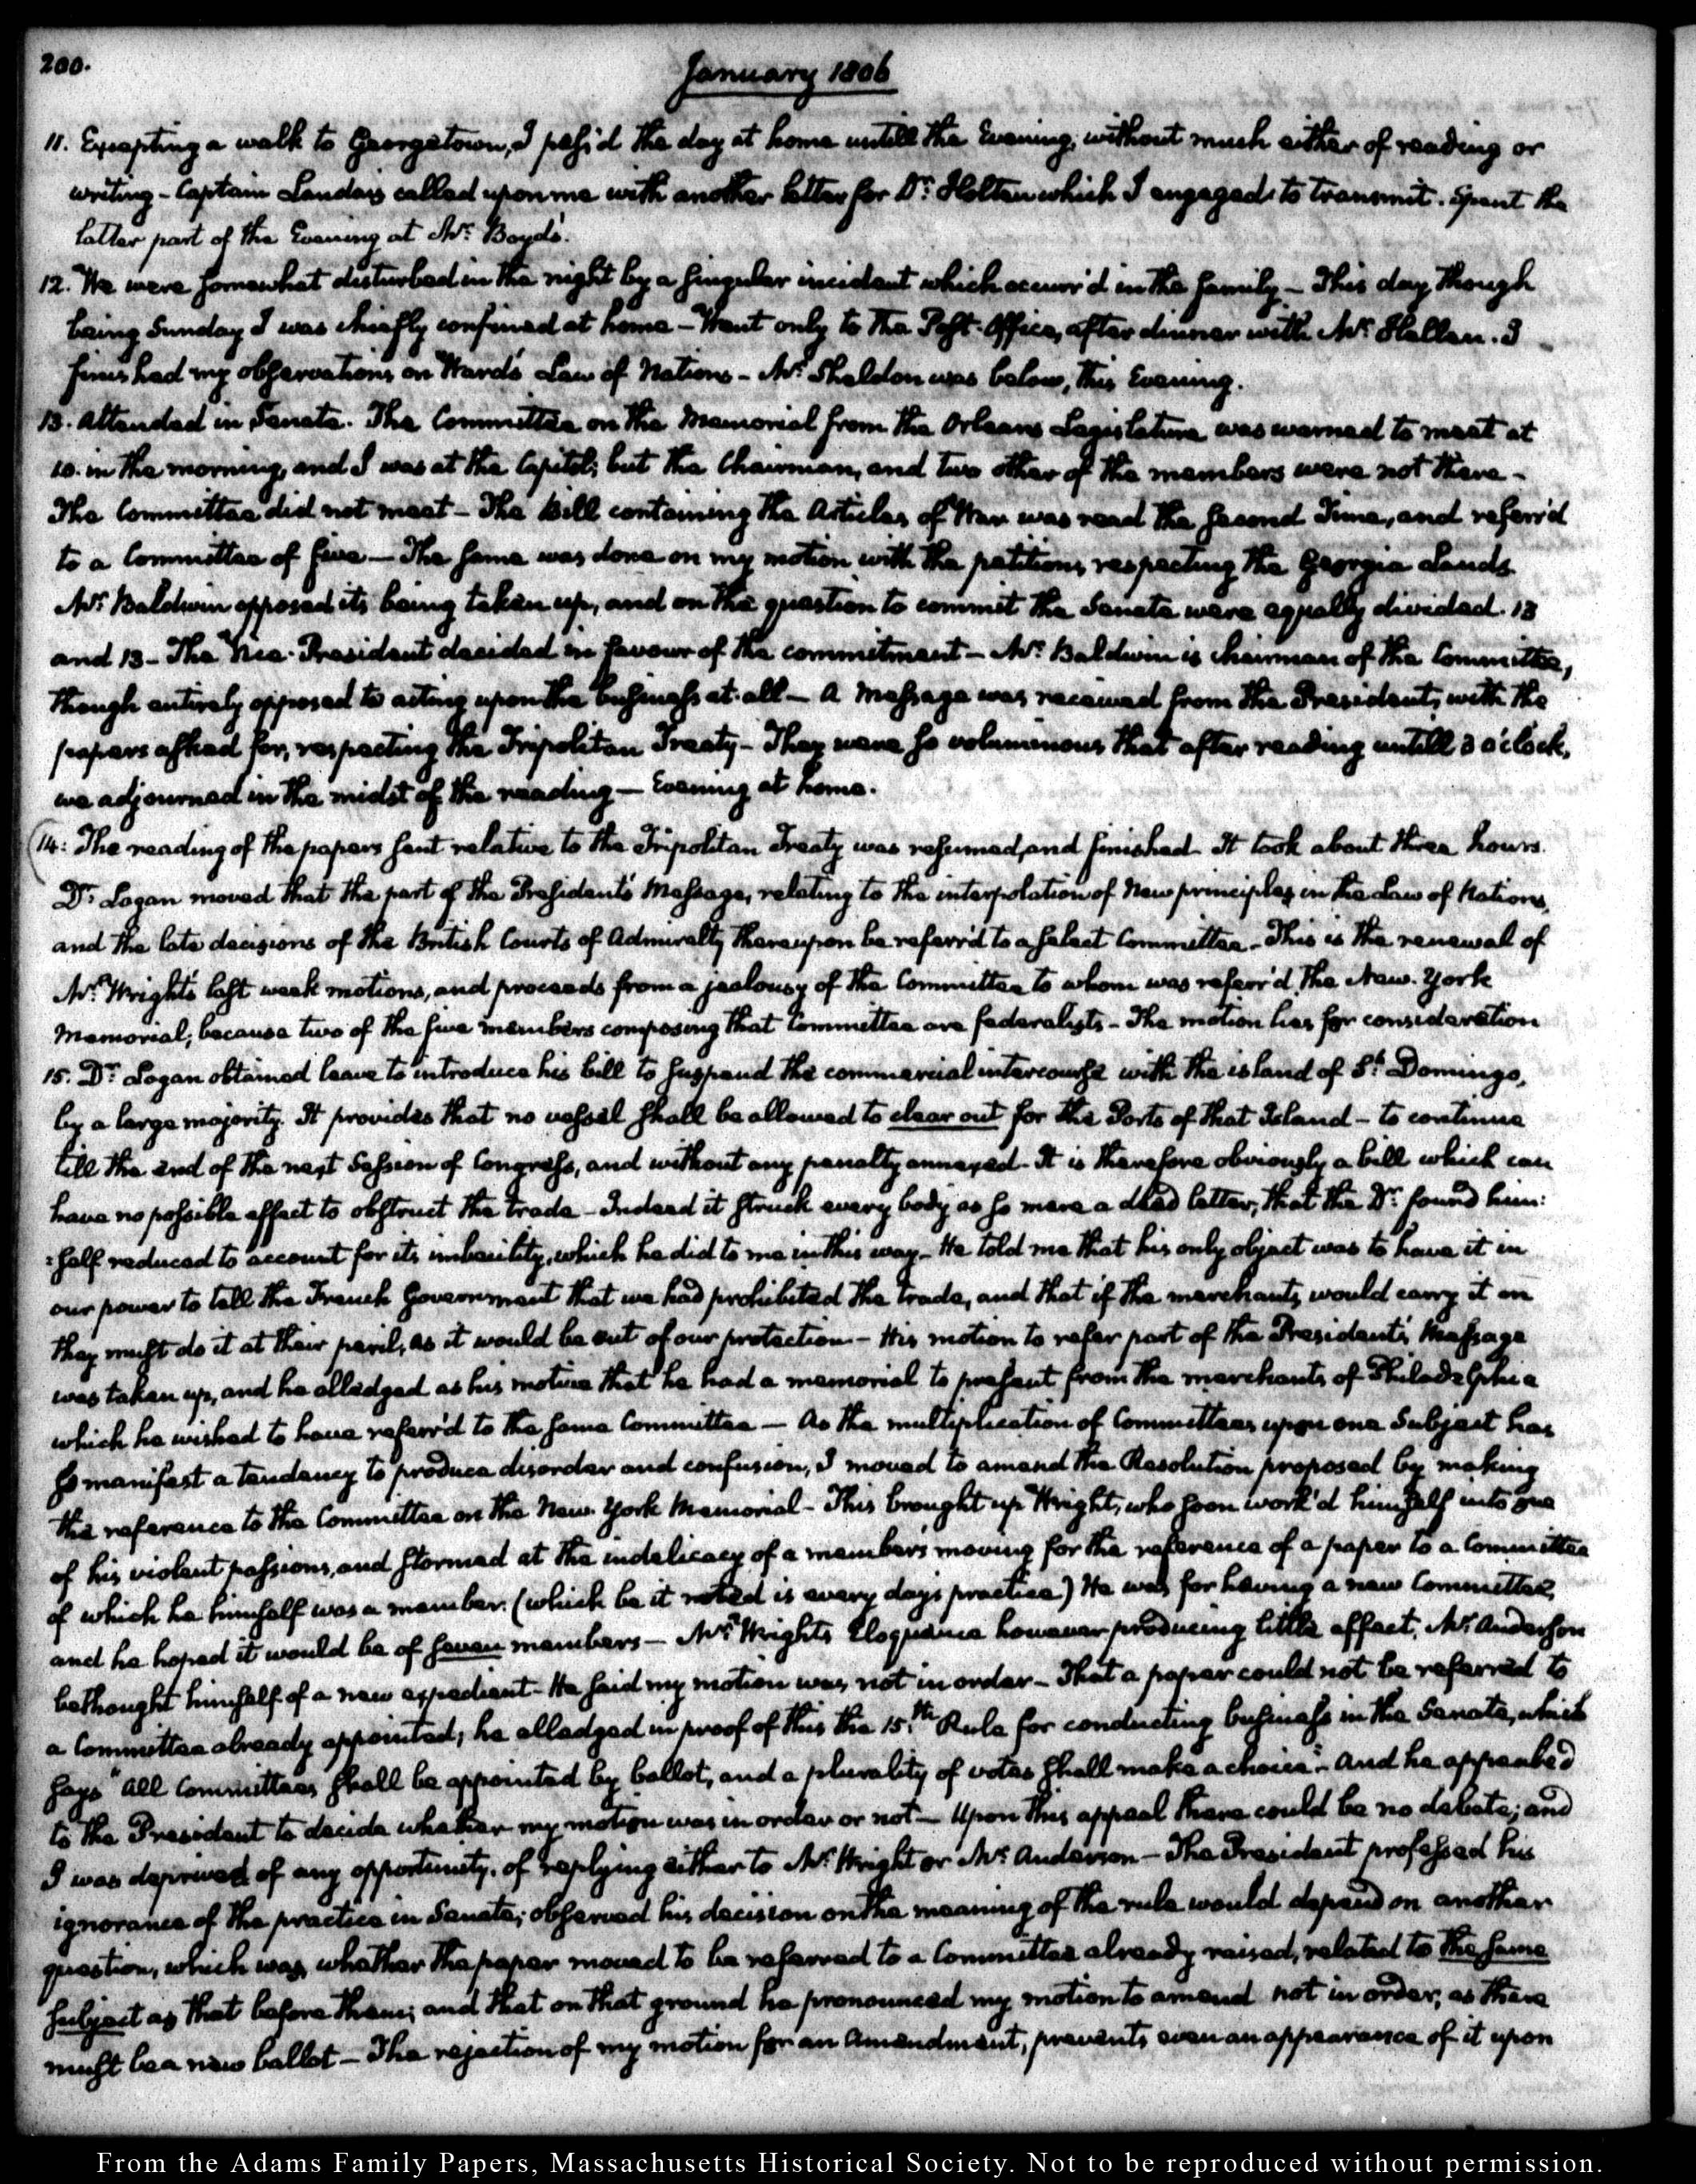 200.
January 1806
11. Excepting a walk to Georgetown, I pass'd the day at home untill the Evening, without much either of reading or
writing - Captain Landais called upon me with another letter for Dr. Holten which I engaged to transmit. Spent the
latter part of the Evening at Mr. Boyd's.
12. We were somewhat disturbed in the night by a singular incident which occurr'd in the family - This day though
being Sunday I was chiefly confined at home - Went only to the Post-Office, after dinner with Mr. Hellen. I
finished my observations on Ward's Law of Nations - Mr. Sheldon was below, this Evening.
13. Attended in Senate. The Committee on the Memorial from the Orleans Legislature was warned to meet at
10. in the morning, and I was at the Capitol; but the Chairman, and two other of the members were not there -
The Committee did not meet - The Bill containing the Articles of War was read the second Time, and referr'd
to a Committee of five - The same was done on my motion with the petitions respecting the Georgia Lands
Mr. Baldwin opposed its being taken up, and on the question to commit the Senate were equally divided. 13
and 13 - The Vice-President decided in favour of the commitment - Mr. Baldwin is chairman of the Committee,
though entirely opposed to acting upon the business at all - A Message was received from the President, with the
papers asked for, respecting the Tripolitan Treaty - They were so voluminous that after reading untill 3 o'clock,
we adjourned in the midst of the reading - Evening at home.
14: The reading of the papers sent relative to the Tripolitan Treaty was resumed, and finished. It took about three hours.
Dr. Logan moved that the part of the President's Message, relating to the interpolation of New principles in the Law of Nations,
and the late decisions of the British Courts of Admiralty thereupon be referr'd to a select Committee. This is the renewal of
Mr. Wright's last week motions, and proceeds from a jealousy of the Committee to whom was referr'd the New-York
Memorial; because two of the five members composing that Committee are federalists - The motion lies for consideration
15. Dr. Logan obtained leave to introduce his bill to suspend the commercial intercourse with the island of St. Domingo,
by a large majority. It provides that no vessel shall be allowed to clear out for the Ports of that Island - to continue
till the end of the next Session of Congress, and without any penalty annexed. It is therefore obviously a bill which can
have no possible effect to obstruct the trade - Indeed it struck every body as so mere a dead letter, that the Dr. found him:
:self reduced to account for its imbecility, which he did to me in this way - He told me that his only object was to have it in
our power to tell the French Government that we had prohibited the trade, and that if the merchants would carry it on
they must do it at their peril, as it would be out of our protection - His motion to refer part of the President's Message
was taken up, and he alledged as his motive that he had a memorial to present from the merchants of Philadelphia
which he wished to have referr'd to the same Committee - As the multiplication of Committees upon one Subject has
so manifest a tendency to produce disorder and confusion, I moved to amend the Resolution proposed by making
the reference to the Committee on the New-York Memorial - This brought up Wright, who soon work'd himself into one
of his violent passions, and stormed at the indelicacy of a member's moving for the reference of a paper to a Committee
of which he himself was a member. (which be it noted is every day's practice) He was for having a new Committee,
and he hoped it would be of seven members - Mr. Wright's Eloquence however producing little effect, Mr. Anderson
bethought himself of a new expedient - He said my motion was not in order - That a paper could not be referred to
a Committee already appointed; he alledged in proof of this the 15.th Rule for conducting business in the Senate, which
says "All Committees shall be appointed by ballot, and a plurality of votes shall make a choice." And he appealed
to the President to decide whether my motion was in order or not - Upon this appeal there could be no debate; and
I was deprived of any opportunity, of replying either to Mr. Wright or Mr. Anderson - The President professed his
ignorance of the practice in Senate; observed his decision on the meaning of the rule would depend on another
question, which was, whether the paper moved to be referred to a Committee already raised, related to the same
subject as that before them; and that on that ground he pronounced my motion to amend not in order, as there
must be a new ballot - The rejection of my motion for an Amendment, prevents even an appearance of it upon
From the Adams Family Papers, Massachusetts Historical Society. Not to be reproduced without permission.